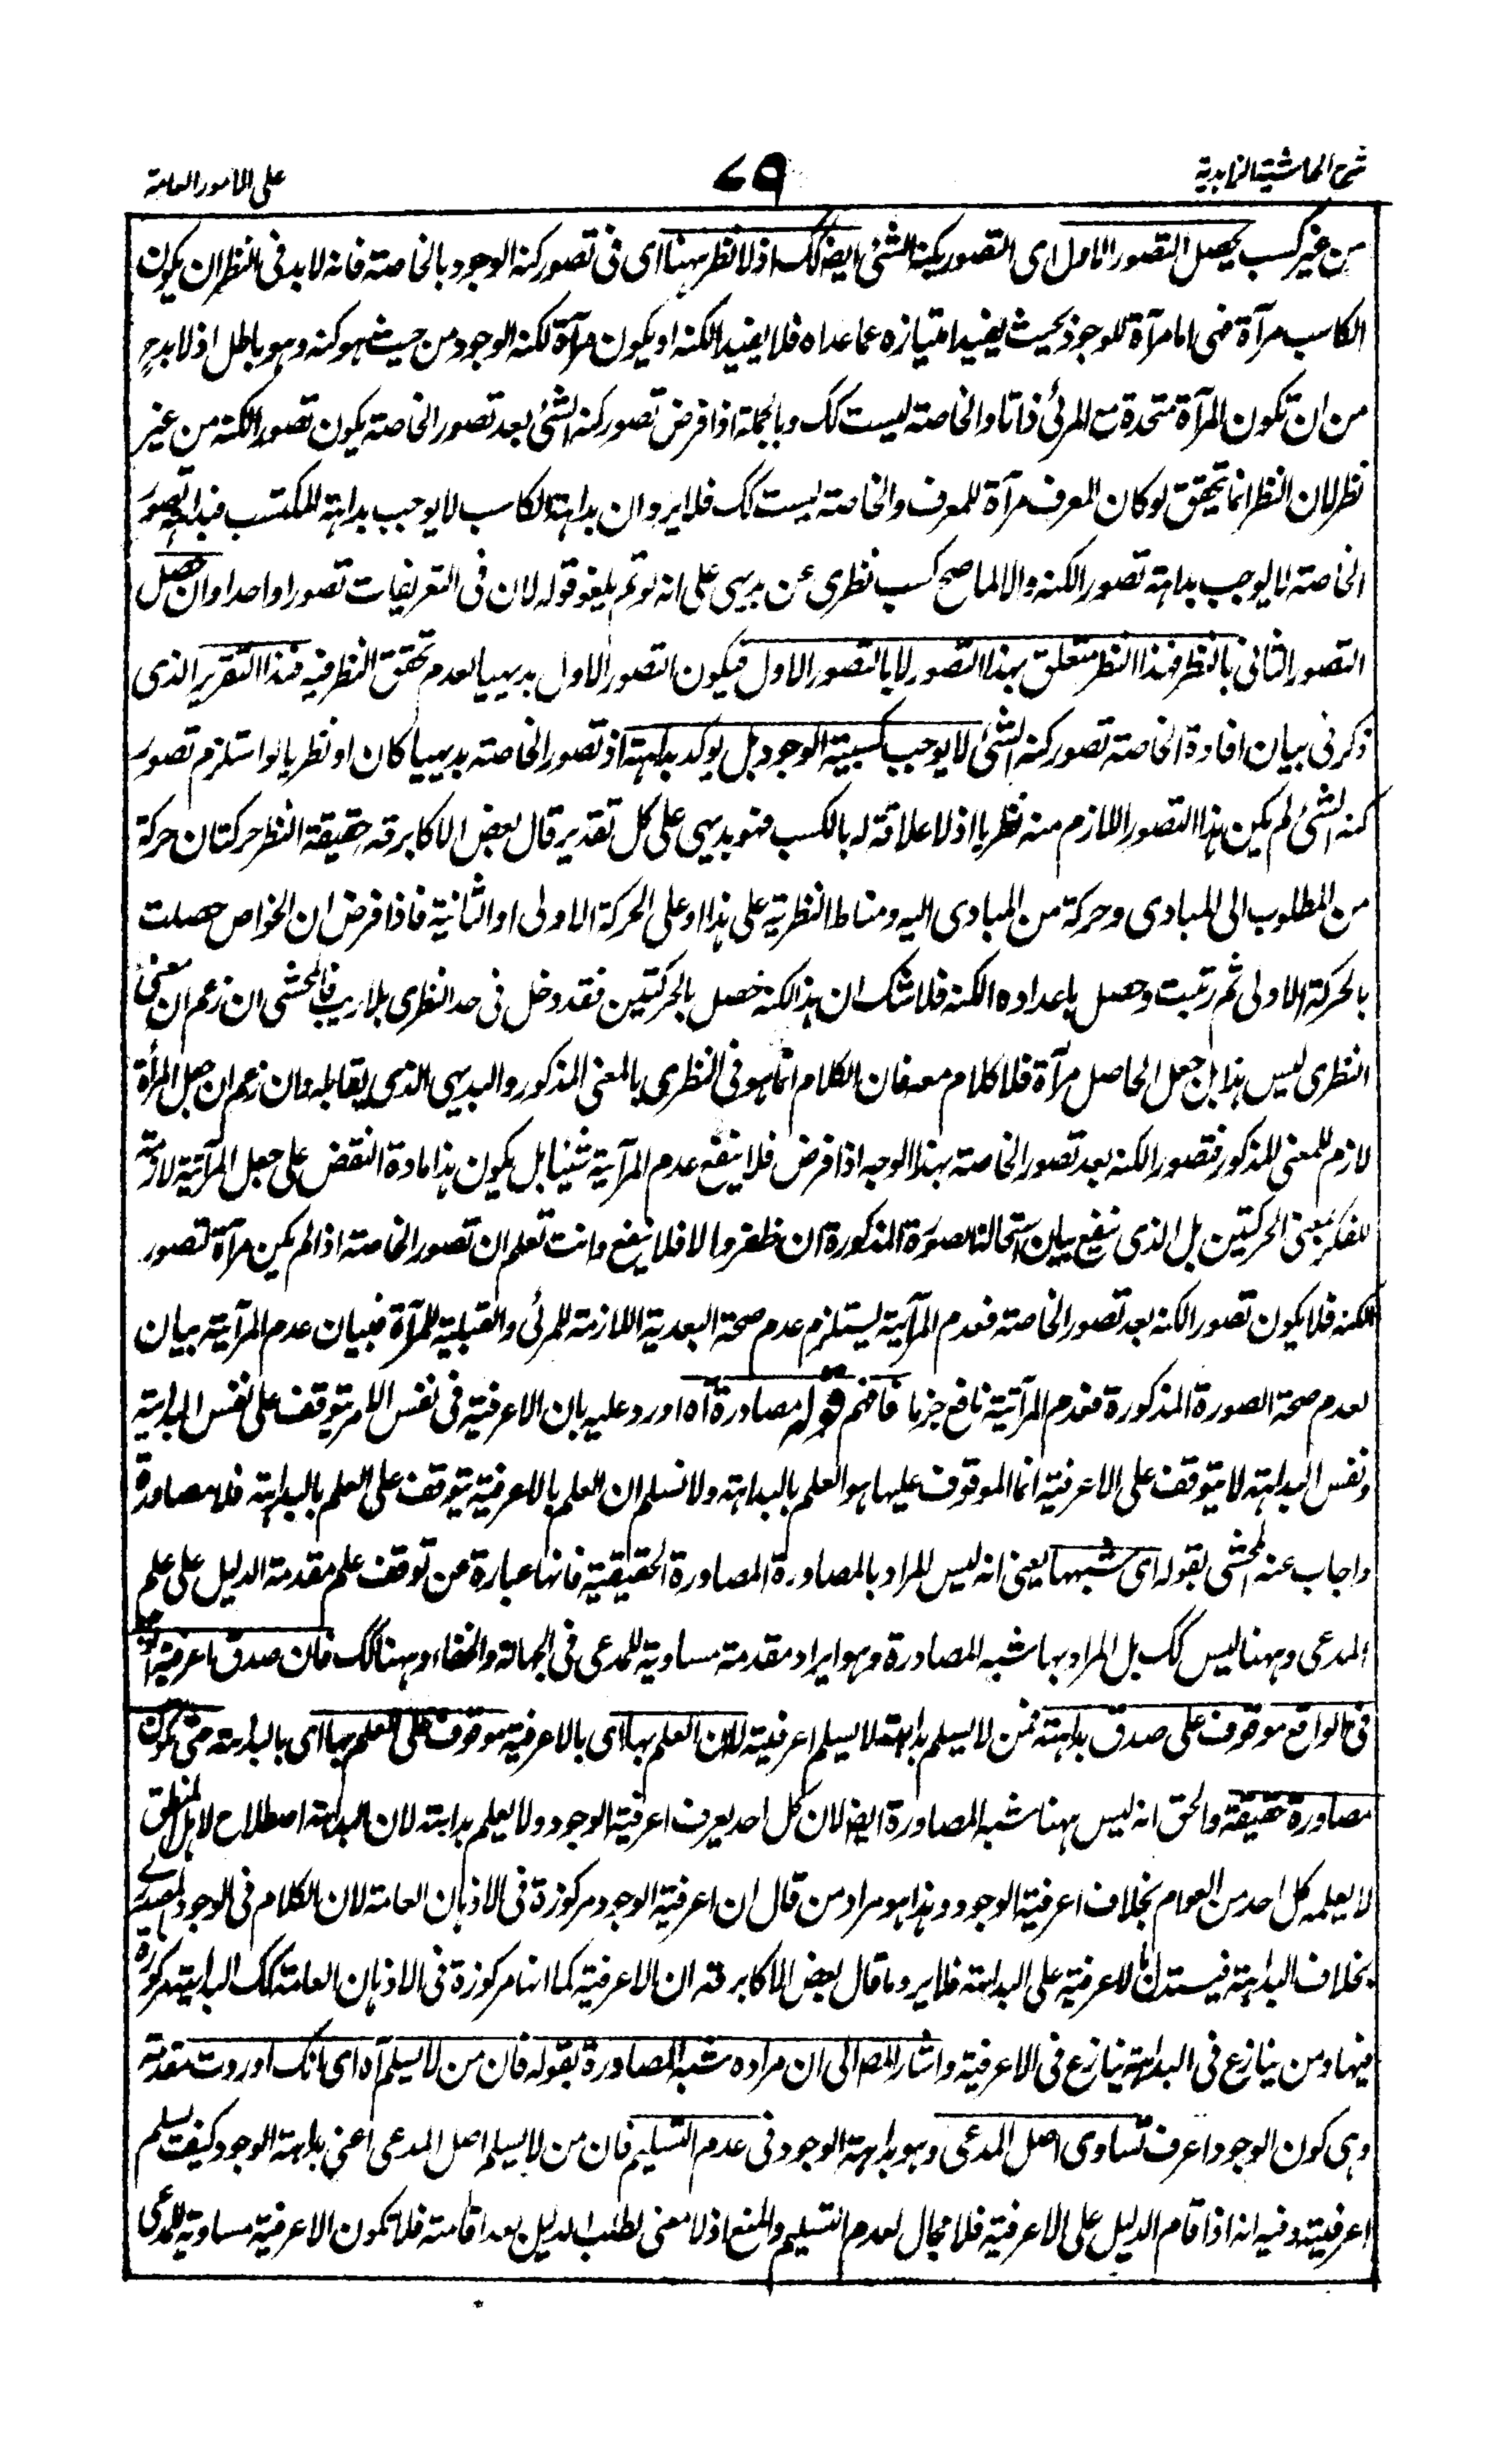 شرح الحاشية الزاهدية
٧٩
على الامور العامة
من غير كسب يحصل التصور الاول اى التصور بكنه الشئ ايضا كك اذ لا نظر ههنا اى فى تصور كنه الوجود بالخاصة فانه لا بد فى النظر ان يكون
الكاسب مرآة فهى اما مرآة للوجود بحيث يفيد امتيازه عما عداه فلا يفيد الكنه او يكون مرآة لكنه الوجود من حيث هو كنه وهو باطل اذ لا بد ح
من ان تكون المرآة متحدة مع المرئى ذاتا والخاصة ليست كك وبالجملة اذا فرض تصور كنه الشئ بعد تصور الخاصة يكون تصور الكنه من غير
نظر لان النظر انما تحقق لو كان المعرف مرآة للمعرف والخاصة ليست كك فلا يرد ان بداهة الكاسب لا يوجب بداهة المكتسب فبداهة تصور
الخاصة لا يوجب بداهة تصور الكنه والا لما صح كسب نظرى عن بديهى على انه لو تم يلغو قوله لان فى التعريفات تصورا واحدا وان حصل
التصور الثانى بالنظر فهذا النظر متعلق بهذا التصور لا بالتصور الاول فيكون التصور الاول بديهيا لعدم تحقق النظر فيه فهذا التقرير الذى
ذكر فى بيان افادة الخاصة تصور كنه الشئ لا يوجب كسبية الوجود بل يوكد بداهته اذ تصور الخاصة بديهيا كان او نظريا لو استلزم تصور
كنه الشئ لم يكن هذا التصور اللازم منه نظريا اذ لا علاقة له بالكسب فهو بديهى على كل تقدير قال بعض الاكابر قه حقيقة النظر حركتان حركة
من المطلوب الى المبادى وحركة من المبادى اليه ومناط النظرية على هذا او على الحركة الاولى او الثانية فاذا فرض ان الخواص حصلت
بالحركة الاولى ثم رتبت وحصل باعداده الكنه فلا شك ان هذا الكنه حصل بالحركتين فقد دخل فى حد النظرى بلا ريب فالمحشى ان زعم ان معنى
النظرى ليس هذا بل جعل الحاصل مرآة فلا كلام معه فان الكلام انما هو فى النظرى بالمعنى المذكور والبديهى الذى يقابله وان زعم ان جعل المرآة
لازم للمعنى المذكور فتصور الكنه بعد تصور الخاصة بهذا الوجه اذا فرض فلا ينفع عدم المرآتية شيئا بل يكون هذا مادة النقض على جعل المرآتية لازمة
للفكر بمعنى الحركتين بل الذى ينفع بيان استحالة الصورة المذكورة ان ظفر والا فلا ينفع وانت تعلم ان تصور الخاصة اذا لم يكن مرآة لتصور
الكنه فلا يكون تصور الكنه بعد تصور الخاصة فعدم المرآتية يستلزم عدم صحة البعدية اللازمة للمرئى والقبلية للمرآة فبيان عدم المرآتية بيان
لعدم صحة الصورة المذكورة فعدم المرآتية نافع جزما فافهم قوله مصادرة آه اورد عليه بان الاعرفية فى نفس الامر يتوقف على نفس البداهة
ونفس البداهة لا يتوقف على الاعرفية انما الموقوف عليها هو العلم بالبداهة ولا نسلم ان العلم بالاعرفية يتوقف على العلم بالبداهة فلا مصادرة
واجاب عنه المحشى بقوله اى شبهها يعنى انه ليس المراد بالمصادرة المصادرة الحقيقية فانها عبارة عن توقف علم مقدمة الدليل على علم
المدعى وههنا ليس كك بل المراد بها شبه المصادرة وهو ايراد مقدمة مساوية للمدعى فى الجهالة والخفاء وههنا كك فان صدق اعرفية الوجود
فى الواقع موقوف على صدق بداهته فمن لا يسلم بداهته لا يسلم اعرفيته لا ان العلم بها اى بالاعرفية موقوف على العلم بها اى بالبداهة حتى يكون
مصادرة حقيقة والحق انه ليس ههنا شبه المصادرة ايضا لان كل احد يعرف اعرفية الوجود ولا يعلم بداهته لان البداهة اصطلاح لاهل المنطق
لا يعلمه كل احد من العوام بخلاف اعرفية الوجود وهذا هو مراد من قال ان اعرفية الوجود مركوزة فى الاذهان العامة لان الكلام فى الوجود المصدرى
بخلاف البداهة فيستدل بالاعرفية على البداهة فلا يرد ما قال بعض الاكابر قه ان الاعرفية كما انها مركوزة فى الاذهان العامة كك البداهة مركوزة
فيها ومن ينازع فى البداهة ينازع فى الاعرفية واشار المص الى ان مراده شبه المصادرة بقوله فان من لا يسلم آه اى بانك اوردت مقدمة
وهى كون الوجود اعرف تساوى اصل المدعى وهو بداهة الوجود فى عدم التسليم فان من لا يسلم اصل المدعى اعنى بداهة الوجود كيف يسلم
اعرفيته وفيه انه اذا قام الدليل على الاعرفية فلا مجال لعدم التسليم والمنع اذ لا معنى لطلب الدليل بعد اقامته فلا تكون الاعرفية مساوية للمدعى